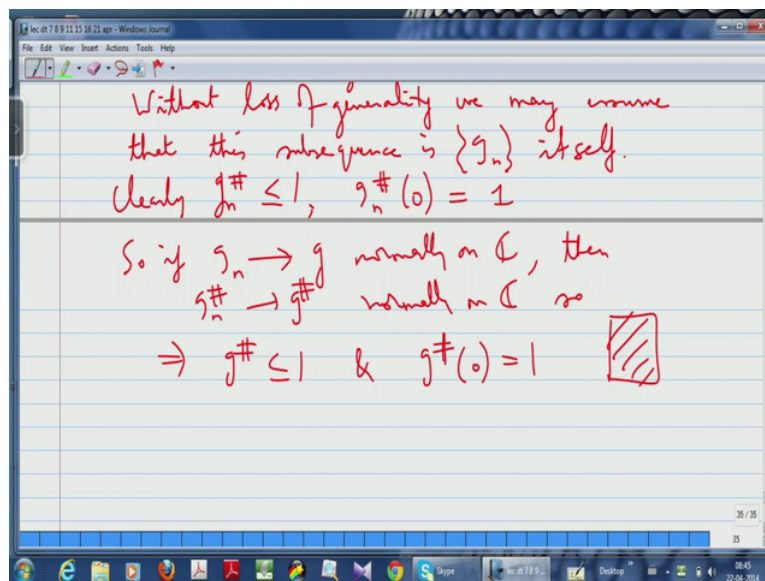 lec dt 7 8 9 11 15 16 21 apr - Windows Journal
File Edit View Insert Actions Tools Help
Without loss of generality we may assume
that this subsequence is {g_n} itself.
Clearly g_n^# ≤ 1, g_n^#(0) = 1
So if g_n → g normally on ℂ, then
g_n^# → g^# normally on ℂ so
⇒ g^# ≤ 1 & g^#(0) = 1
35 / 35
35
Skype
lec dt 7 8 9 ...
Desktop
08:45
22-04-2014